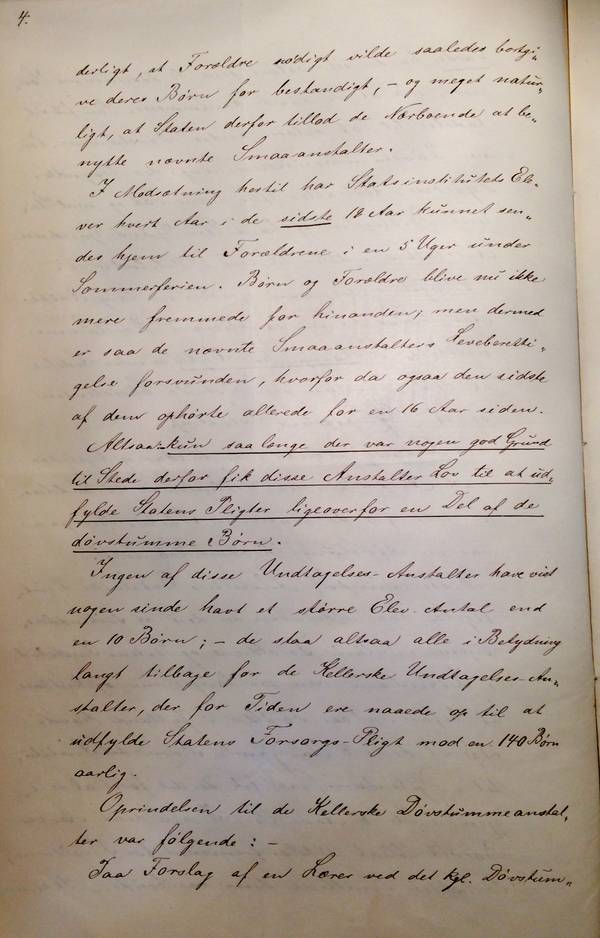 4.
derligt, at Forældre nødigt vilde saaledes bortgi-
ve deres Børn for bestandigt, – og meget natur-
ligt, at Staten derfor tillod de Nærboende at be-
nytte nævnte Smaaanstalter.
I Modsætning hertil har Statsinstitutets Ele-
ver hvert Aar i de sidste 18 Aar kunnet sen-
des hjem til Forældrene i en 5 Uger under
Sommerferien. Børn og Forældre blive nu ikke
mere fremmede for hinanden; men dermed
er saa de nævnte Smaaanstalters Leveberetti-
gelse forsvunden, hvorfor da ogsaa den sidste
af dem ophørte allerede for en 16 Aar siden.
Altsaa: kun saa længe der var nogen god Grund
til Stede derfor fik disse Anstalter Lov til at ud-
fylde Statens Pligter ligeoverfor en Del af de
døvstumme Børn.
Ingen af disse Undtagelses-Anstalter have vist
nogen sinde havt et større Elev-Antal end
en 10 Børn; – de staa altsaa alle i Betydning
langt tilbage for de Kellerske Undtagelses-An-
stalter, der for Tiden ere naaede op til at
udfylde Statens Forsørgs-Pligt mod en 140 Børn
aarlig.
Oprindelsen til de Kellerske Døvstummeanstal-
ter var følgende: –
Paa Forslag af en Lærer ved det kgl. Døvstum-